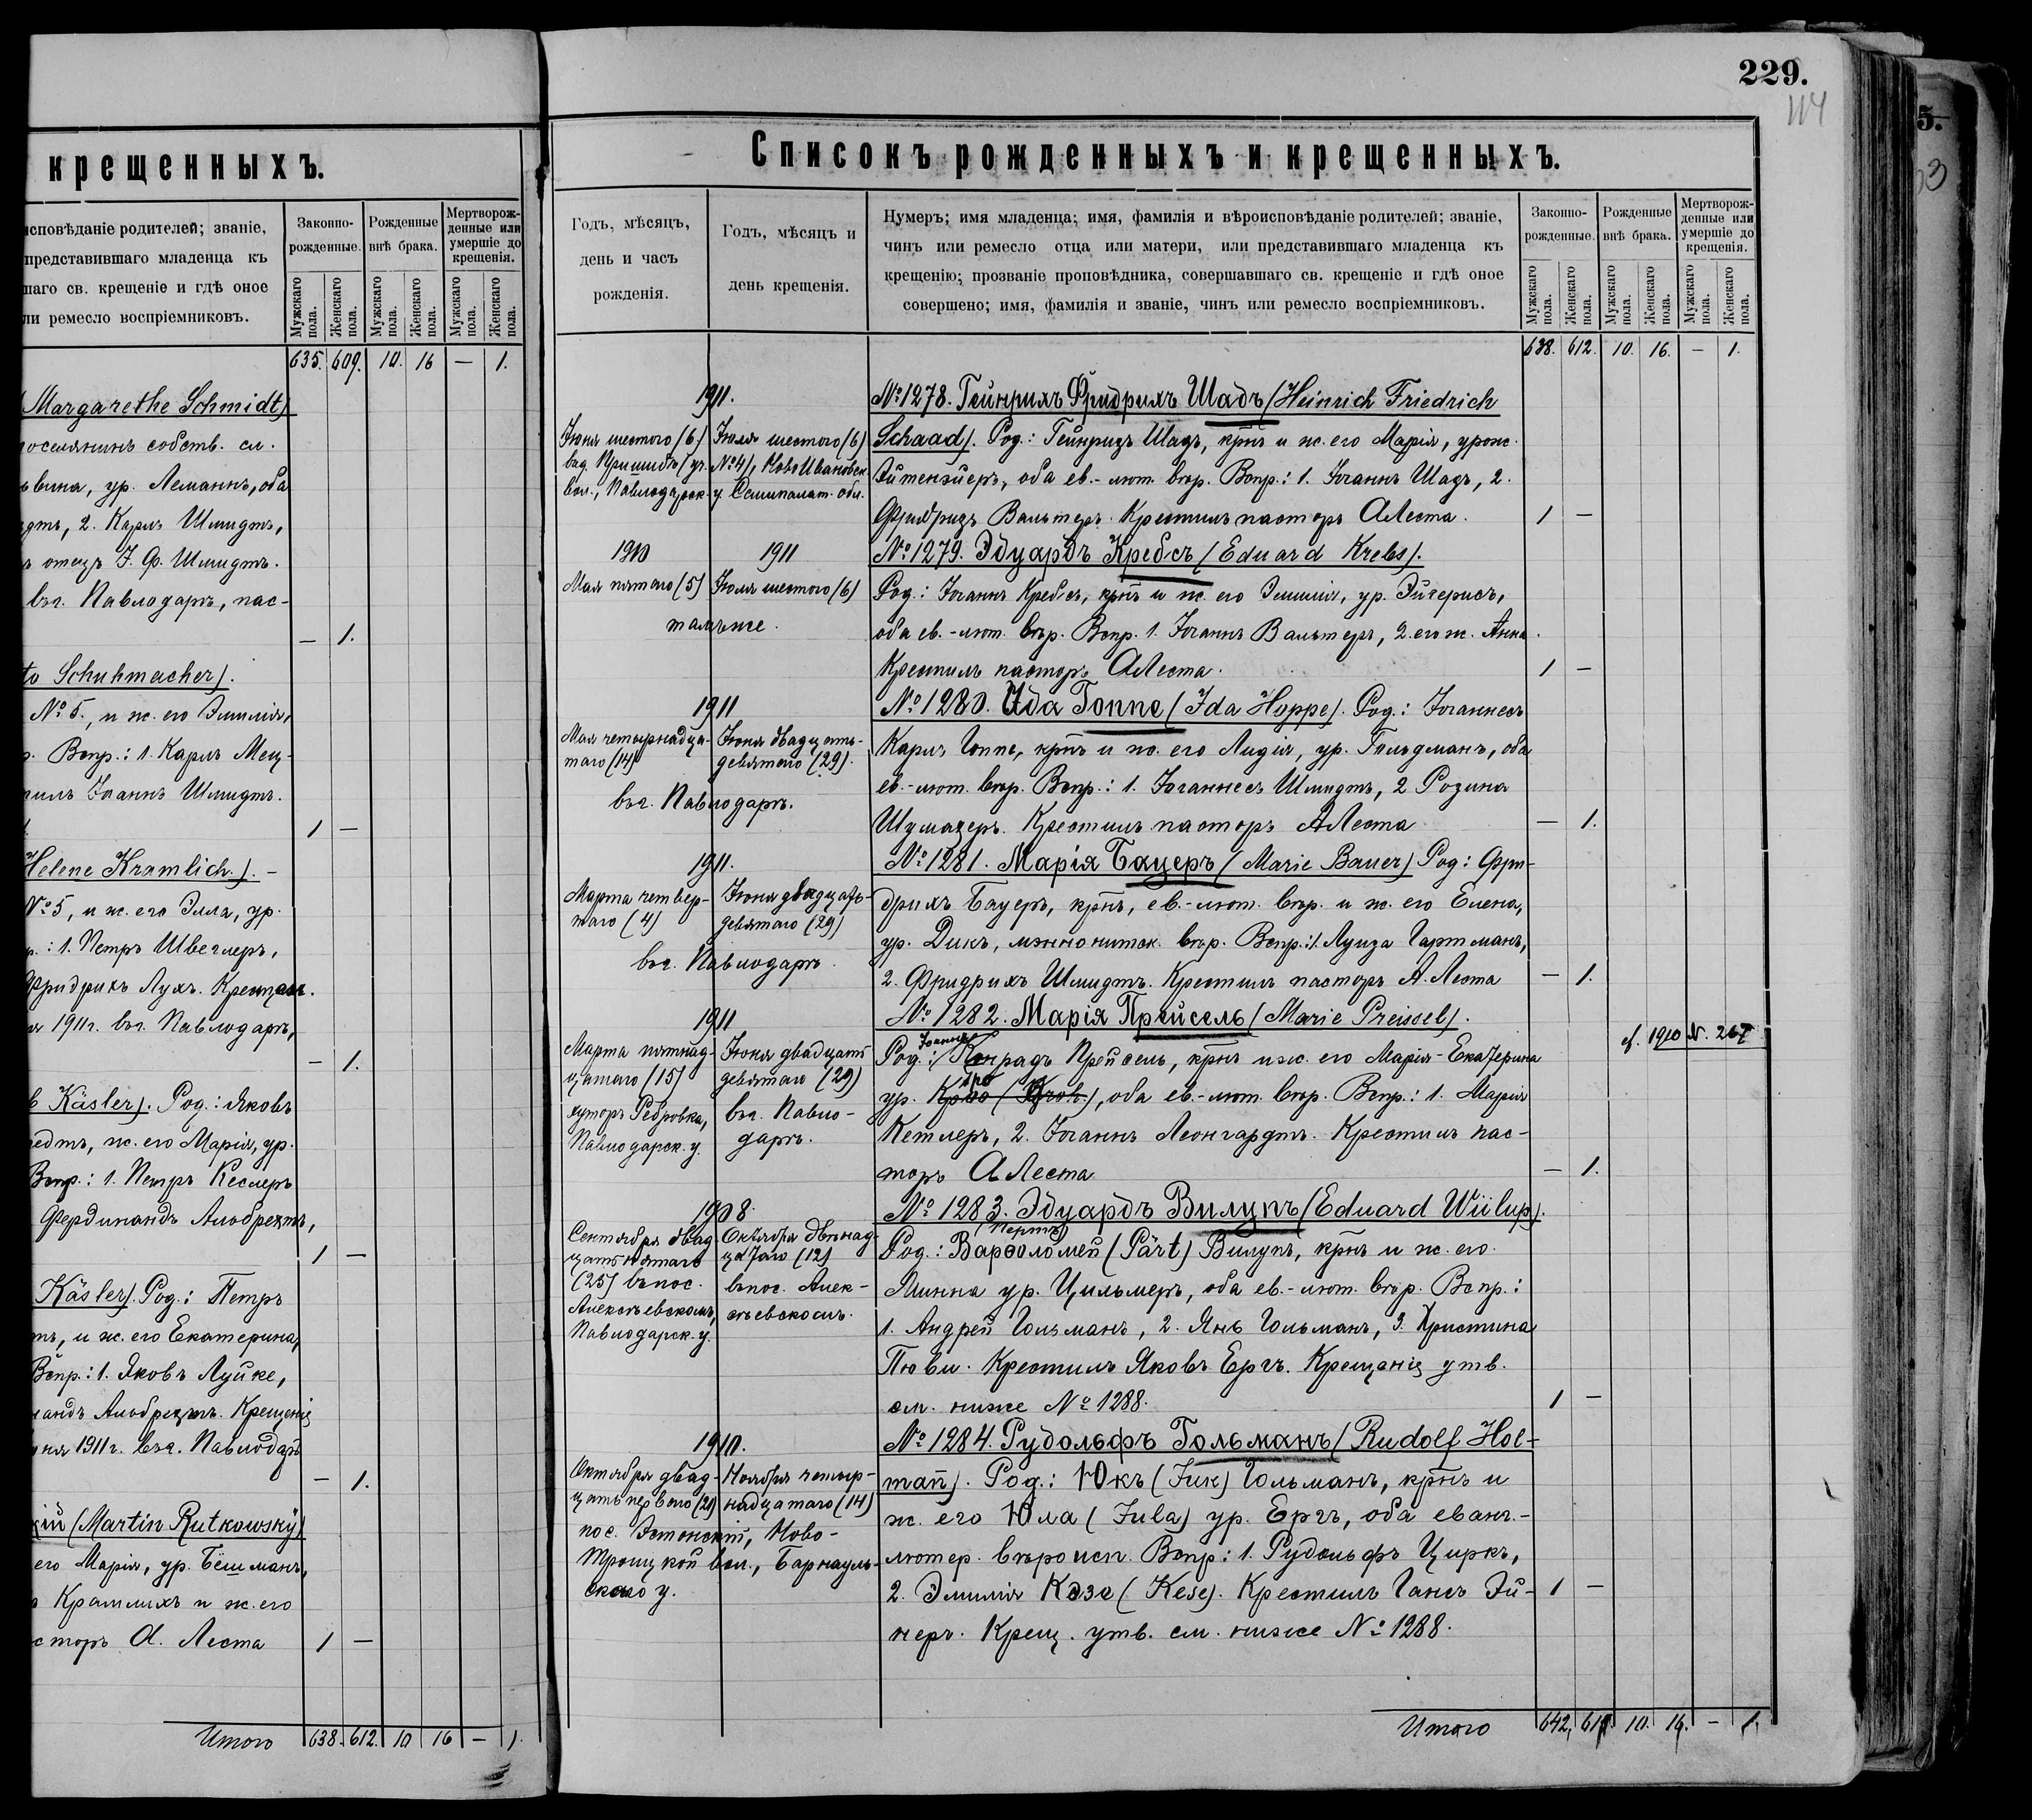 крещенныхъ.
исповѣданіе родителей; званіе,
представившаго младенца къ
шаго св. крещеніе и гдѣ оное
ли ремесло воспріемниковъ.
Законно-рожденные.
Рожденные внѣ брака.
Мертворож-денные или умершіе до крещенія.
Мужскаго пола. Женскаго пола. Мужскаго пола. Женскаго пола. Мужскаго пола. Женскаго пола.
635. 609. 10. 16 — 1.
Margarethe Schmidt)
поселянинъ собств. сл.
ьвина, ур. Леманнъ, оба
идтъ, 2. Карлъ Шмидтъ,
ъ отецъ І. Ф. Шмидтъ.
въ г. Павлодаръ, пас-
— 1.
to Schuhmacher).
№ 5., и ж. его Эмилія,
р. Вспр.: 1. Карлъ Мец-
тилъ Іоаннъ Шмидтъ.
1 —
Helene Kramlich.). —
№ 5, и ж. его Элла, ур.
р.: 1. Петръ Швеглеръ,
Фридрихъ Лухъ. Крещен.
ня 1911 г. въ г. Павлодаръ,
— 1.
b Käsler). Род.: Яковъ
редтъ, ж. его Марія, ур.
Вспр.: 1. Петръ Кеслеръ
Фердинандъ Альбрехтъ,
1 —
Käsler). Род.: Петръ
тъ, и ж. его Екатерина,
Вспр.: 1. Яковъ Луйке,
нандъ Альбрехтъ. Крещеніе
юня 1911 г. въ г. Павлодаръ
— 1.
кій (Martin Rutkowsky)
его Марія, ур. Бешманъ,
Крамлихъ и ж. его
сторъ А. Леста 1 —
Итого 638. 612. 10 16 — 1.
229.
114
Списокъ рожденныхъ и крещенныхъ.
Годъ, мѣсяцъ, день и часъ рожденія.
Годъ, мѣсяцъ и день крещенія.
Нумеръ; имя младенца; имя, фамилія и вѣроисповѣданіе родителей; званіе,
чинъ или ремесло отца или матери, или представившаго младенца къ
крещенію; прозваніе проповѣдника, совершавшаго св. крещеніе и гдѣ оное
совершено; имя, фамилія и званіе, чинъ или ремесло воспріемниковъ.
Законно-рожденные.
Рожденные внѣ брака.
Мертворож-денные или умершіе до крещенія.
Мужскаго пола. Женскаго пола. Мужскаго пола. Женскаго пола. Мужскаго пола. Женскаго пола.
638. 612. 10. 16. — 1.
1911. № 1278. Гейнрихъ Фридрихъ Шадъ (Heinrich Friedrich
Іюня шестого (6) Іюля шестого (6) Schaad). Род.: Гейнрихъ Шадъ, крнъ и ж. его Марія, урож.
Пришибъ (уч. № 4), НовоИвановск. Эйтенэйеръ, оба ев.-лют. вѣр. Вспр.: 1. Іоганнъ Шадъ, 2.
вол., Павлодарск. у. Семипалат. обл.
Фридрихъ Вальтеръ. Крестилъ пасторъ А Леста. 1 —
1910 1911 № 1279. Эдуардъ Кребсъ (Eduard Krebs).
Мая пятого (5) Іюля шестого (6) Род.: Іоганнъ Кребсъ, крнъ и ж. его Эмилія, ур. Эйгерисъ,
тамъ же. оба ев.-лют. вѣр. Вспр. 1. Іоганнъ Вальтеръ, 2. его ж. Анна.
Крестилъ пасторъ А Леста. 1 —
1911 № 1280. Ида Гоппе (Ida Hoppe). Род.: Іоганнесъ
Мая четырнадца- Іюня двадцать- Карлъ Гоппе, крнъ и ж. его Лидія, ур. Гильдманъ, оба
таго (14) девятаго (29). ев.-лют. вѣр. Вспр.: 1. Іоганнесъ Шмидтъ, 2 Розина
въ г. Павлодаръ.
Шумахеръ. Крестилъ пасторъ А Леста — 1.
1911. № 1281. Марія Бауеръ (Marie Bauer) Род: Фри-
Марта четвер- Іюня двадцать- дрихъ Бауеръ, крнъ, ев.-лют. вѣр. и ж. его Елена,
таго (4) девятаго (29)
ур. Дикъ, меннонитск. вѣр. Вспр.: 1. Луиза Гартманъ,
въ г. Павлодаръ.
2. Фридрихъ Шмидтъ. Крестилъ пасторъ А. Леста — 1.
1911 № 1282. Марія Прейсель (Marie Preissel).
cf. 1910 N. 267
Іоаннъ
Марта пятнад- Іюня двадцать Род.: Конрадъ Прейсель, крнъ и ж. его Марія-Екатерина
цатаго (15) девятаго (29) ур. Кроо (Kroh), оба ев.-лют. вѣр. Вспр.: 1. Марія
хуторъ Ребровка, въ г. Павло- Кетлеръ, 2. Іоганнъ Леонгардтъ. Крестилъ пас-
Павлодарск. у. даръ.
торъ А Леста — 1.
1908. № 1283. Эдуардъ Вилупъ (Eduard Wiilup).
(Пертъ)
Сентября двад- Октября двѣнад- Род.: Варѳоломей (Pärt) Вилупъ, крнъ и ж. его
цать пятаго цатаго (12)
(25) въ пос. въ пос. Алек- Минна ур. Цильмеръ, оба ев.-лют. вѣр. Вспр.:
Алексѣевскомъ, сѣевскомъ. 1. Андрей Гольманъ, 2. Янъ Гольманъ, 3. Христина
Павлодарск. у.
Пюви. Крестилъ Яковъ Ергъ. Крещеніе утв.
см. ниже № 1288. 1 —
1910. № 1284. Рудольфъ Гольманъ (Rudolf Hol-
Октября двад- Ноября четыр- man̄). Род.: Юкъ (Јик) Гольманъ, крнъ и
цать перваго (21) надцатаго (14) ж. его Юла (Jula) ур. Ергъ, оба еванг.-
пос. Эстонскій, Ново-
Троицкой вол., Барнауль- лютер. вѣроисп. Вспр: 1. Рудольфъ Циркъ,
скаго у. 2. Эмилія Кэзе (Kese). Крестилъ Гансъ Эй- 1 —
неръ. Крещ. утв. см. ниже № 1288.
Итого 642. 616. 10. 16. — 1.